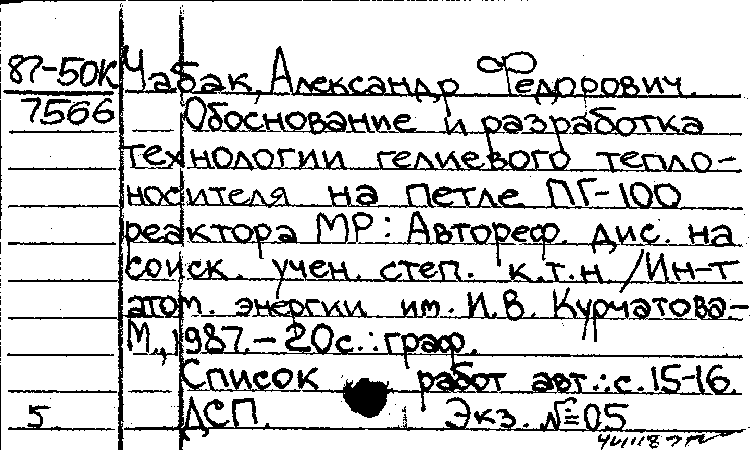 87-50К Чабак, Александр Федорович.
7566 Обоснование и разработка
технологии гелиевого тепло-
носителя на петле ПГ-100
реактора МР: Автореф. дис. на
соиск. учен. степ. к.т.н. /Ин-т
атом. энергии им. И.В. Курчатова.-
М., 1987.-20с.:граф.
Список работ авт.:с.15-16.
5 ДСП. Экз. №05